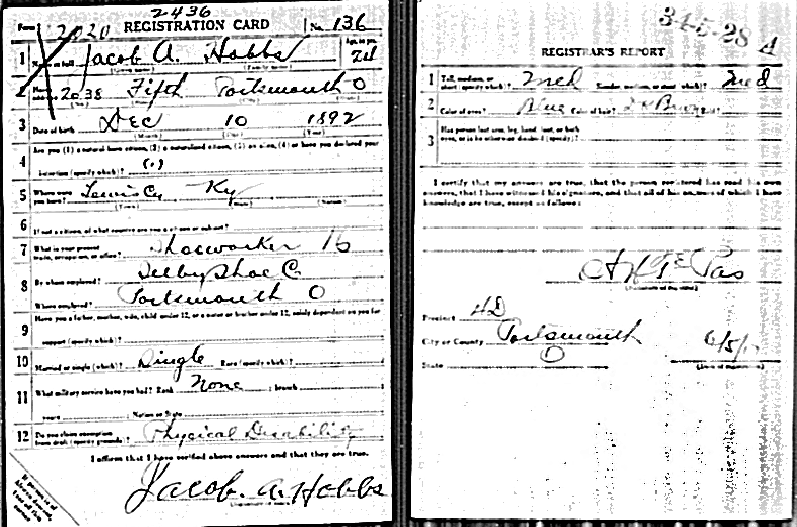 2436
Form 2020 REGISTRATION CARD No. 136
1 Jacob A. Hobbs Age, in yrs. 24
2 2038 Fifth Portsmouth O
3 Date of birth Dec 10 1892
(Month) (Day) (Year)
4 Are you (1) a natural born citizen, (2) a naturalized citizen, (3) an alien, (4) or have you declared your
intention (specify which)? (1)
5 Where were you born? Lewis Cy Ky
6 If not a citizen, of what country are you a citizen or subject?
7 What is your present trade, occupation, or office? Shoeworker 16
8 By whom employed? Selby Shoe C.
Where employed? Portsmouth O
9 Have you a father, mother, wife, child under 12, or a sister or brother under 12, solely dependent on you for
support (specify which)?
10 Married or single (which)? Single Race (specify which)?
11 What military service have you had? Rank None ; branch
years ; Nation or State
12 Do you claim exemption from draft (specify grounds)? Physical Disability
I affirm that I have verified above answers and that they are true.
Jacob. A. Hobbs
34-5-28 A
REGISTRAR'S REPORT
1 Tall, medium, or short (specify which)? Med Slender, medium, or stout (which)? Med
2 Color of eyes? Blue Color of hair? Brown Bald?
3 Has person lost arm, leg, hand, foot, or both
eyes, or is he otherwise disabled (specify)?
I certify that my answers are true, that the person registered has read his own
answers, that I have witnessed his signature, and that all of his answers of which I have
knowledge are true, except as follows:
Precinct 4D
City or County Portsmouth 6/5/17
State O